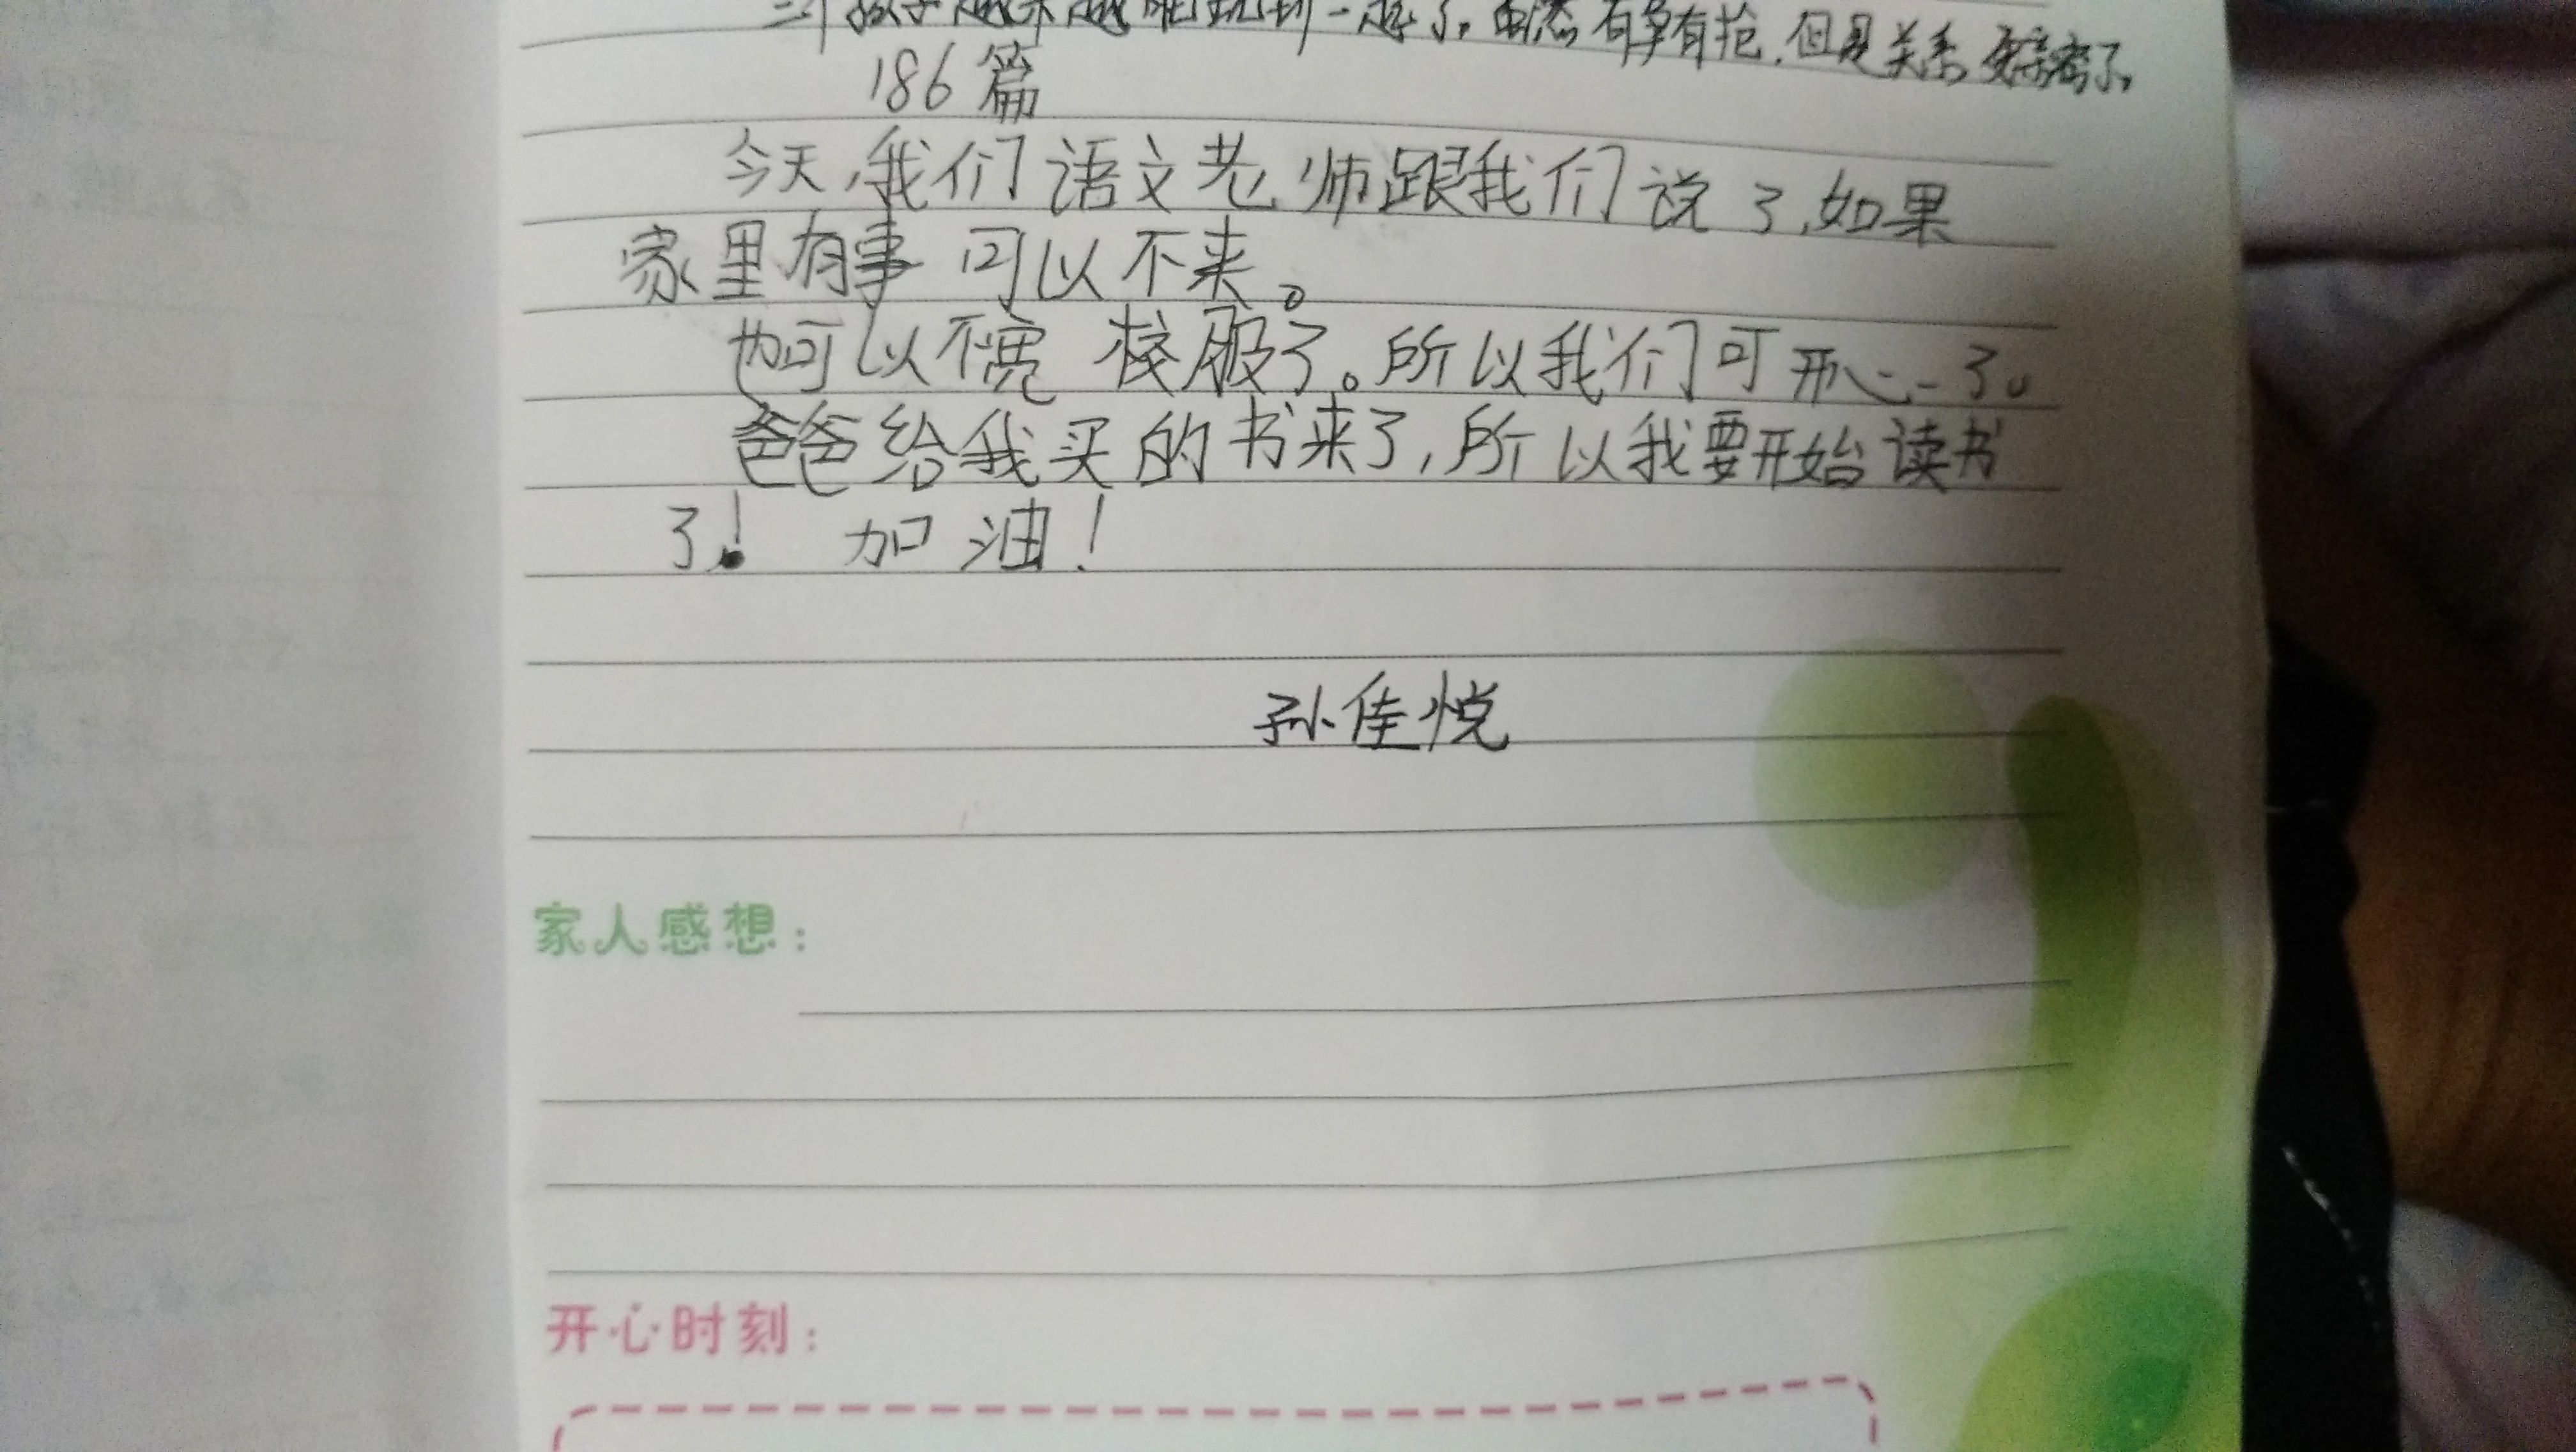 三个孩子越来越能玩到一起了。虽然有争有抢.但是关系更亲密了。
186篇
今天,我们语文老师跟我们说了,如果
家里有事可以不来。
也可以不穿校服了。所以我们可开心了。
爸爸给我买的书来了,所以我要开始读书
了! 加油!
孙佳悦
家人感想:
开心时刻: